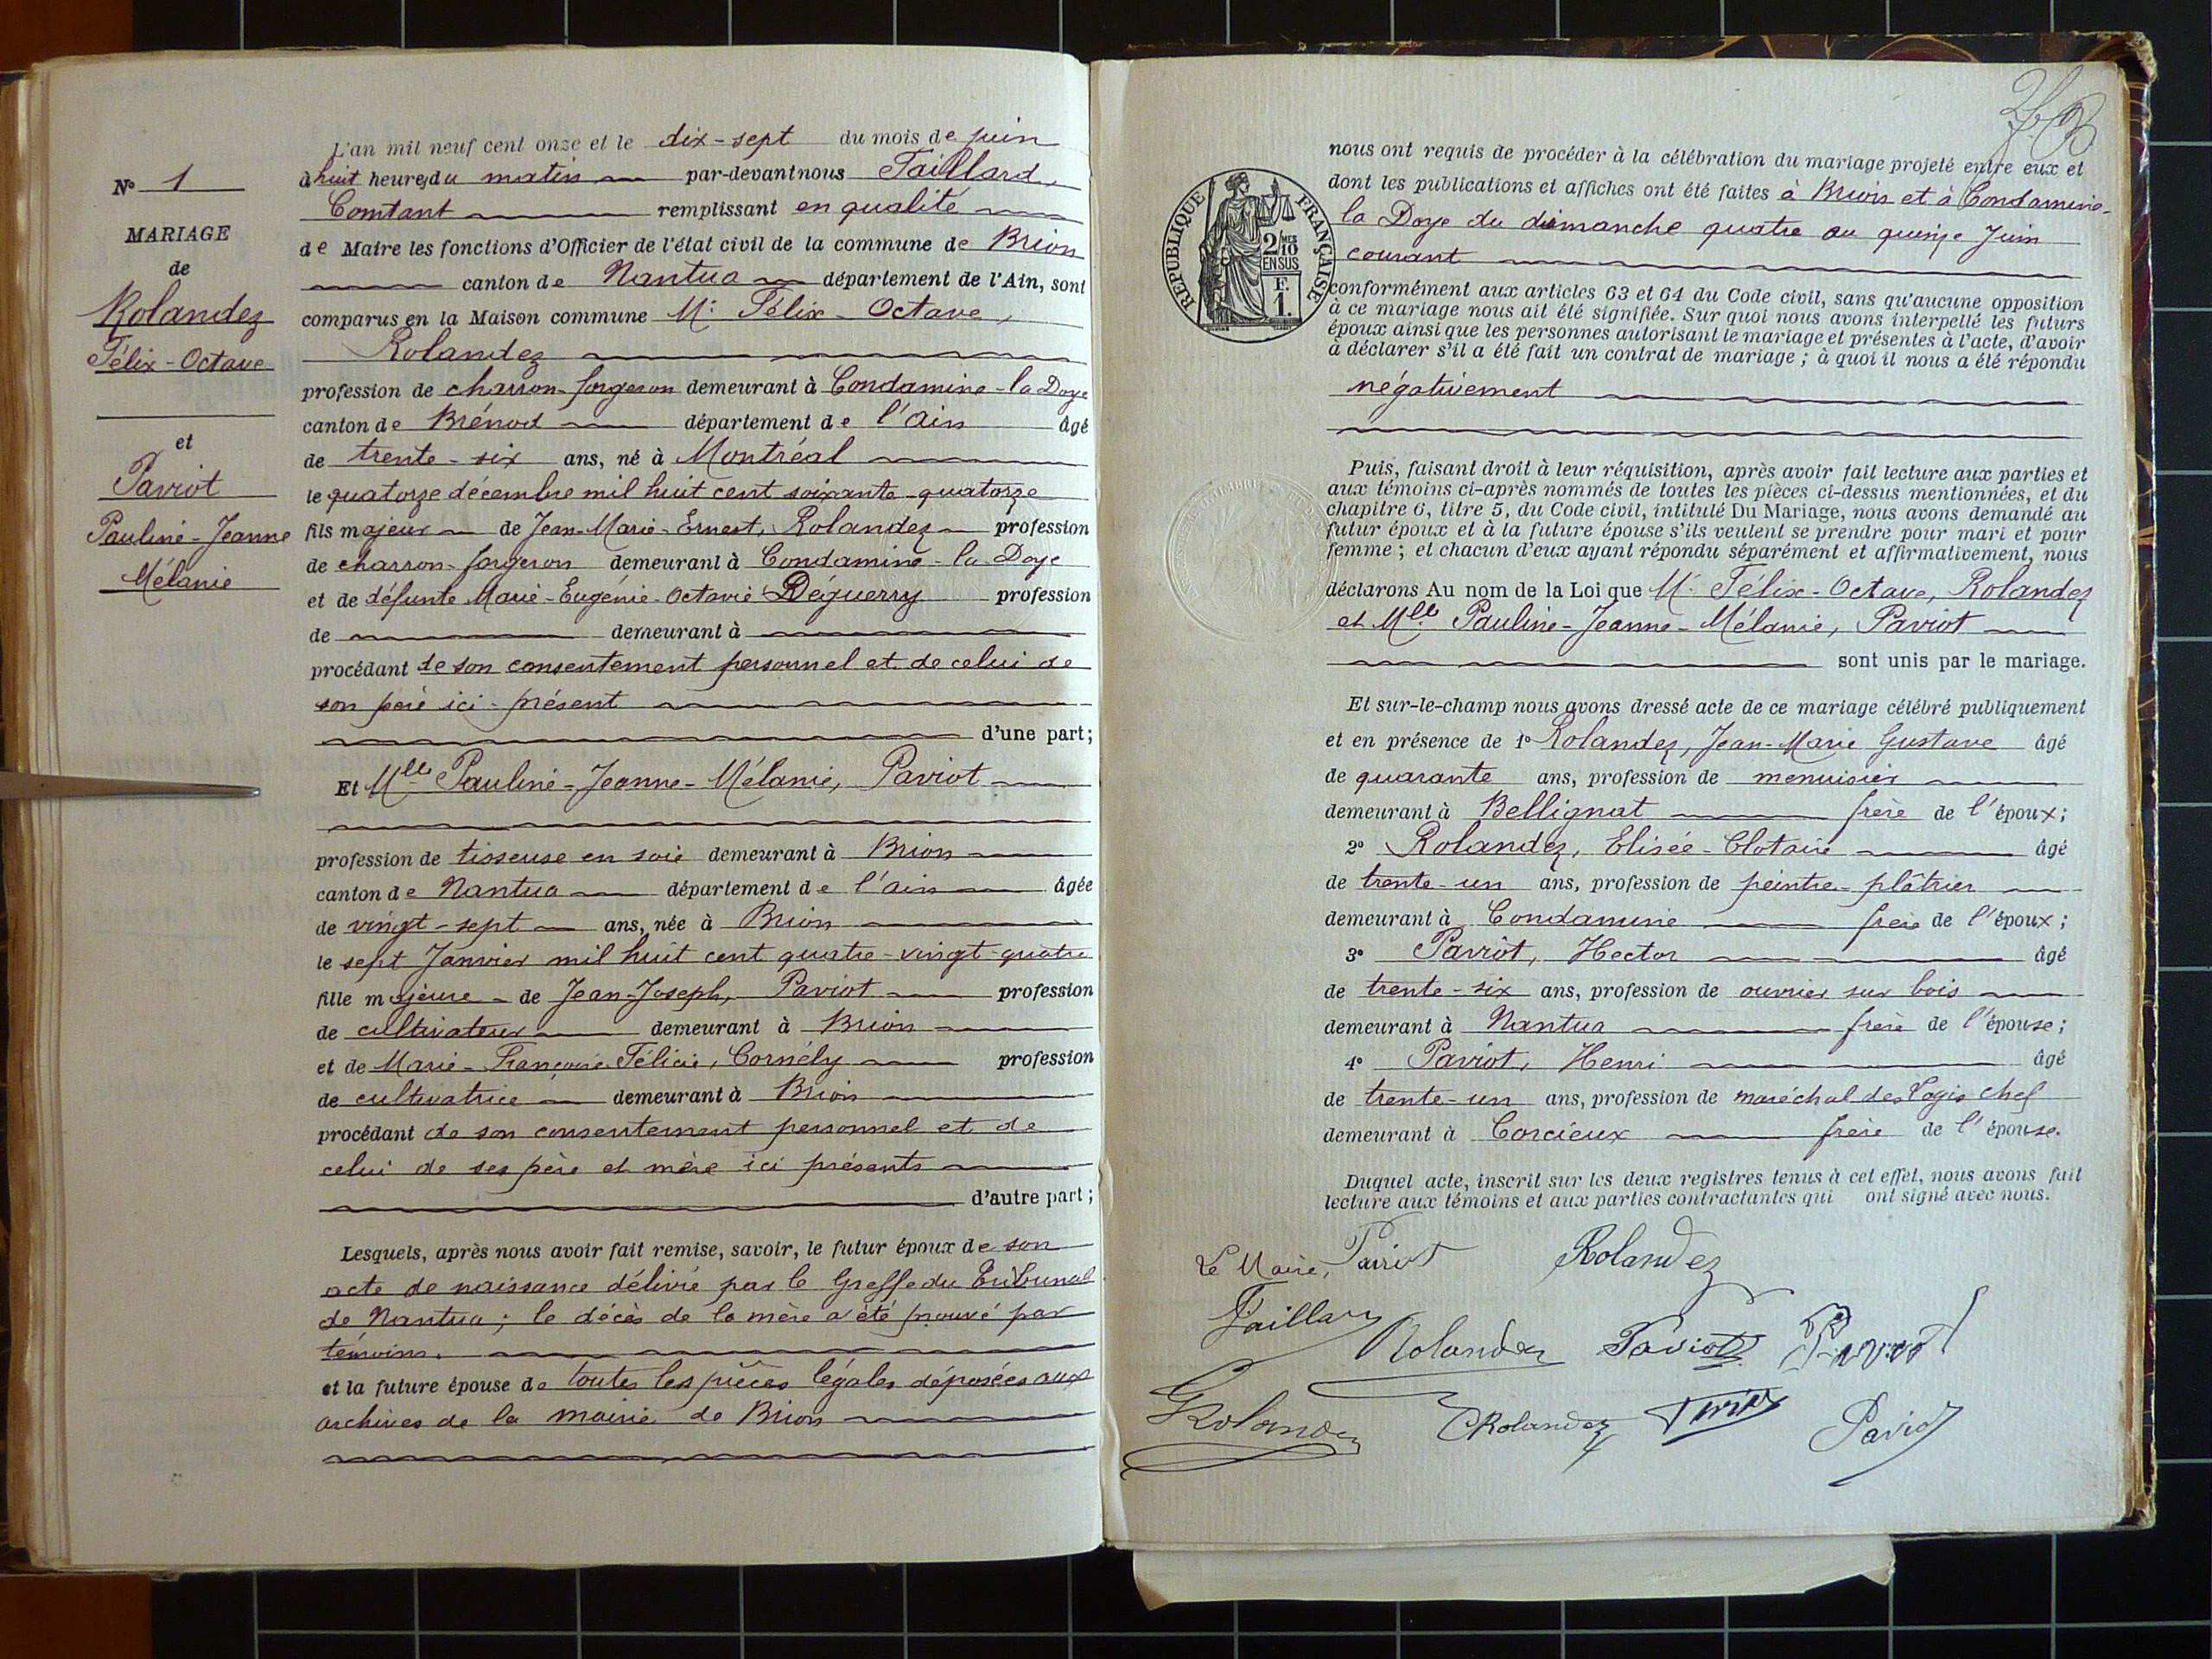 N° 1
MARIAGE
de
Rolandez
Félix - Octave
et
Paviot
Pauline - Jeanne
Mélanie
L'an mil neuf cent onze et le dix-sept du mois de juin
à huit heures du matin par-devant nous Taillard,
Constant remplissant en qualité
de Maire les fonctions d'Officier de l'état civil de la commune de Brion
canton de Nantua département de l'Ain, sont
comparus en la Maison commune Mr Félix - Octave,
Rolandez
profession de charron-forgeron demeurant à Condamine-la Doye
canton de Brénod département de l'Ain âgé
de trente-six ans, né à Montréal
le quatorze décembre mil huit cent soixante-quatorze
fils majeur de Jean-Marie-Ernest, Rolandez profession
de charron-forgeron demeurant à Condamine-la-Doye
et de défunte Marie-Eugénie-Octavie Déguerry profession
de demeurant à
procédant de son consentement personnel et de celui de
son père ici-présent
d'une part;
Et Mlle Pauline-Jeanne-Mélanie, Paviot
profession de tisseuse en soie demeurant à Brion
canton de Nantua département de l'ain âgée
de vingt-sept ans, née à Brion
le sept Janvier mil huit cent quatre-vingt-quatre
fille majeure de Jean-Joseph, Paviot profession
de cultivateur demeurant à Brion
et de Marie-Françoise Félicie, Cornély profession
de cultivatrice demeurant à Brion
procédant de son consentement personnel et de
celui de ses père et mère ici présents
d'autre part;
Lesquels, après nous avoir fait remise, savoir, le futur époux de son
acte de naissance délivré par le Greffe du Tribunal
de Nantua; le décès de la mère a été prouvé par
témoins.
et la future épouse de toutes les pièces légales déposées aux
archives de la mairie de Brion
RÉPUBLIQUE FRANÇAISE
2/10 MES
EN SUS
F.
1.
nous ont requis de procéder à la célébration du mariage projeté entre eux et
dont les publications et affiches ont été faites à Brion et à Condamine-
la Doye du dimanche quatre au quinze Juin
courant
conformément aux articles 63 et 64 du Code civil, sans qu'aucune opposition
à ce mariage nous ait été signifiée. Sur quoi nous avons interpellé les futurs
époux ainsi que les personnes autorisant le mariage et présentes à l'acte, d'avoir
à déclarer s'il a été fait un contrat de mariage; à quoi il nous a été répondu
négativement
Puis, faisant droit à leur réquisition, après avoir fait lecture aux parties et
aux témoins ci-après nommés de toutes les pièces ci-dessus mentionnées, et du
chapitre 6, titre 5, du Code civil, intitulé Du Mariage, nous avons demandé au
futur époux et à la future épouse s'ils veulent se prendre pour mari et pour
femme; et chacun d'eux ayant répondu séparément et affirmativement, nous
déclarons Au nom de la Loi que Mr Félix-Octave, Rolandez
et Mlle Pauline-Jeanne-Mélanie, Paviot
sont unis par le mariage.
Et sur-le-champ nous avons dressé acte de ce mariage célébré publiquement
et en présence de 1° Rolandez, Jean-Marie Gustave âgé
de quarante ans, profession de menuisier
demeurant à Bellignat frère de l'époux;
2° Rolandez, Elisée-Clotaire âgé
de trente-un ans, profession de peintre-plâtrier
demeurant à Condamine frère de l'époux;
3° Paviot, Hector âgé
de trente-six ans, profession de ouvrier sur bois
demeurant à Nantua frère de l'épouse;
4° Paviot, Henri âgé
de trente-un ans, profession de maréchal des Logis chef
demeurant à Corcieux frère de l'épouse.
Duquel acte, inscrit sur les deux registres tenus à cet effet, nous avons fait
lecture aux témoins et aux parties contractantes qui ont signé avec nous.
Le Maire, Paviot Rolandez
Taillard
Rolandez Paviot Paviot
GRolandez CRolandez Paviot